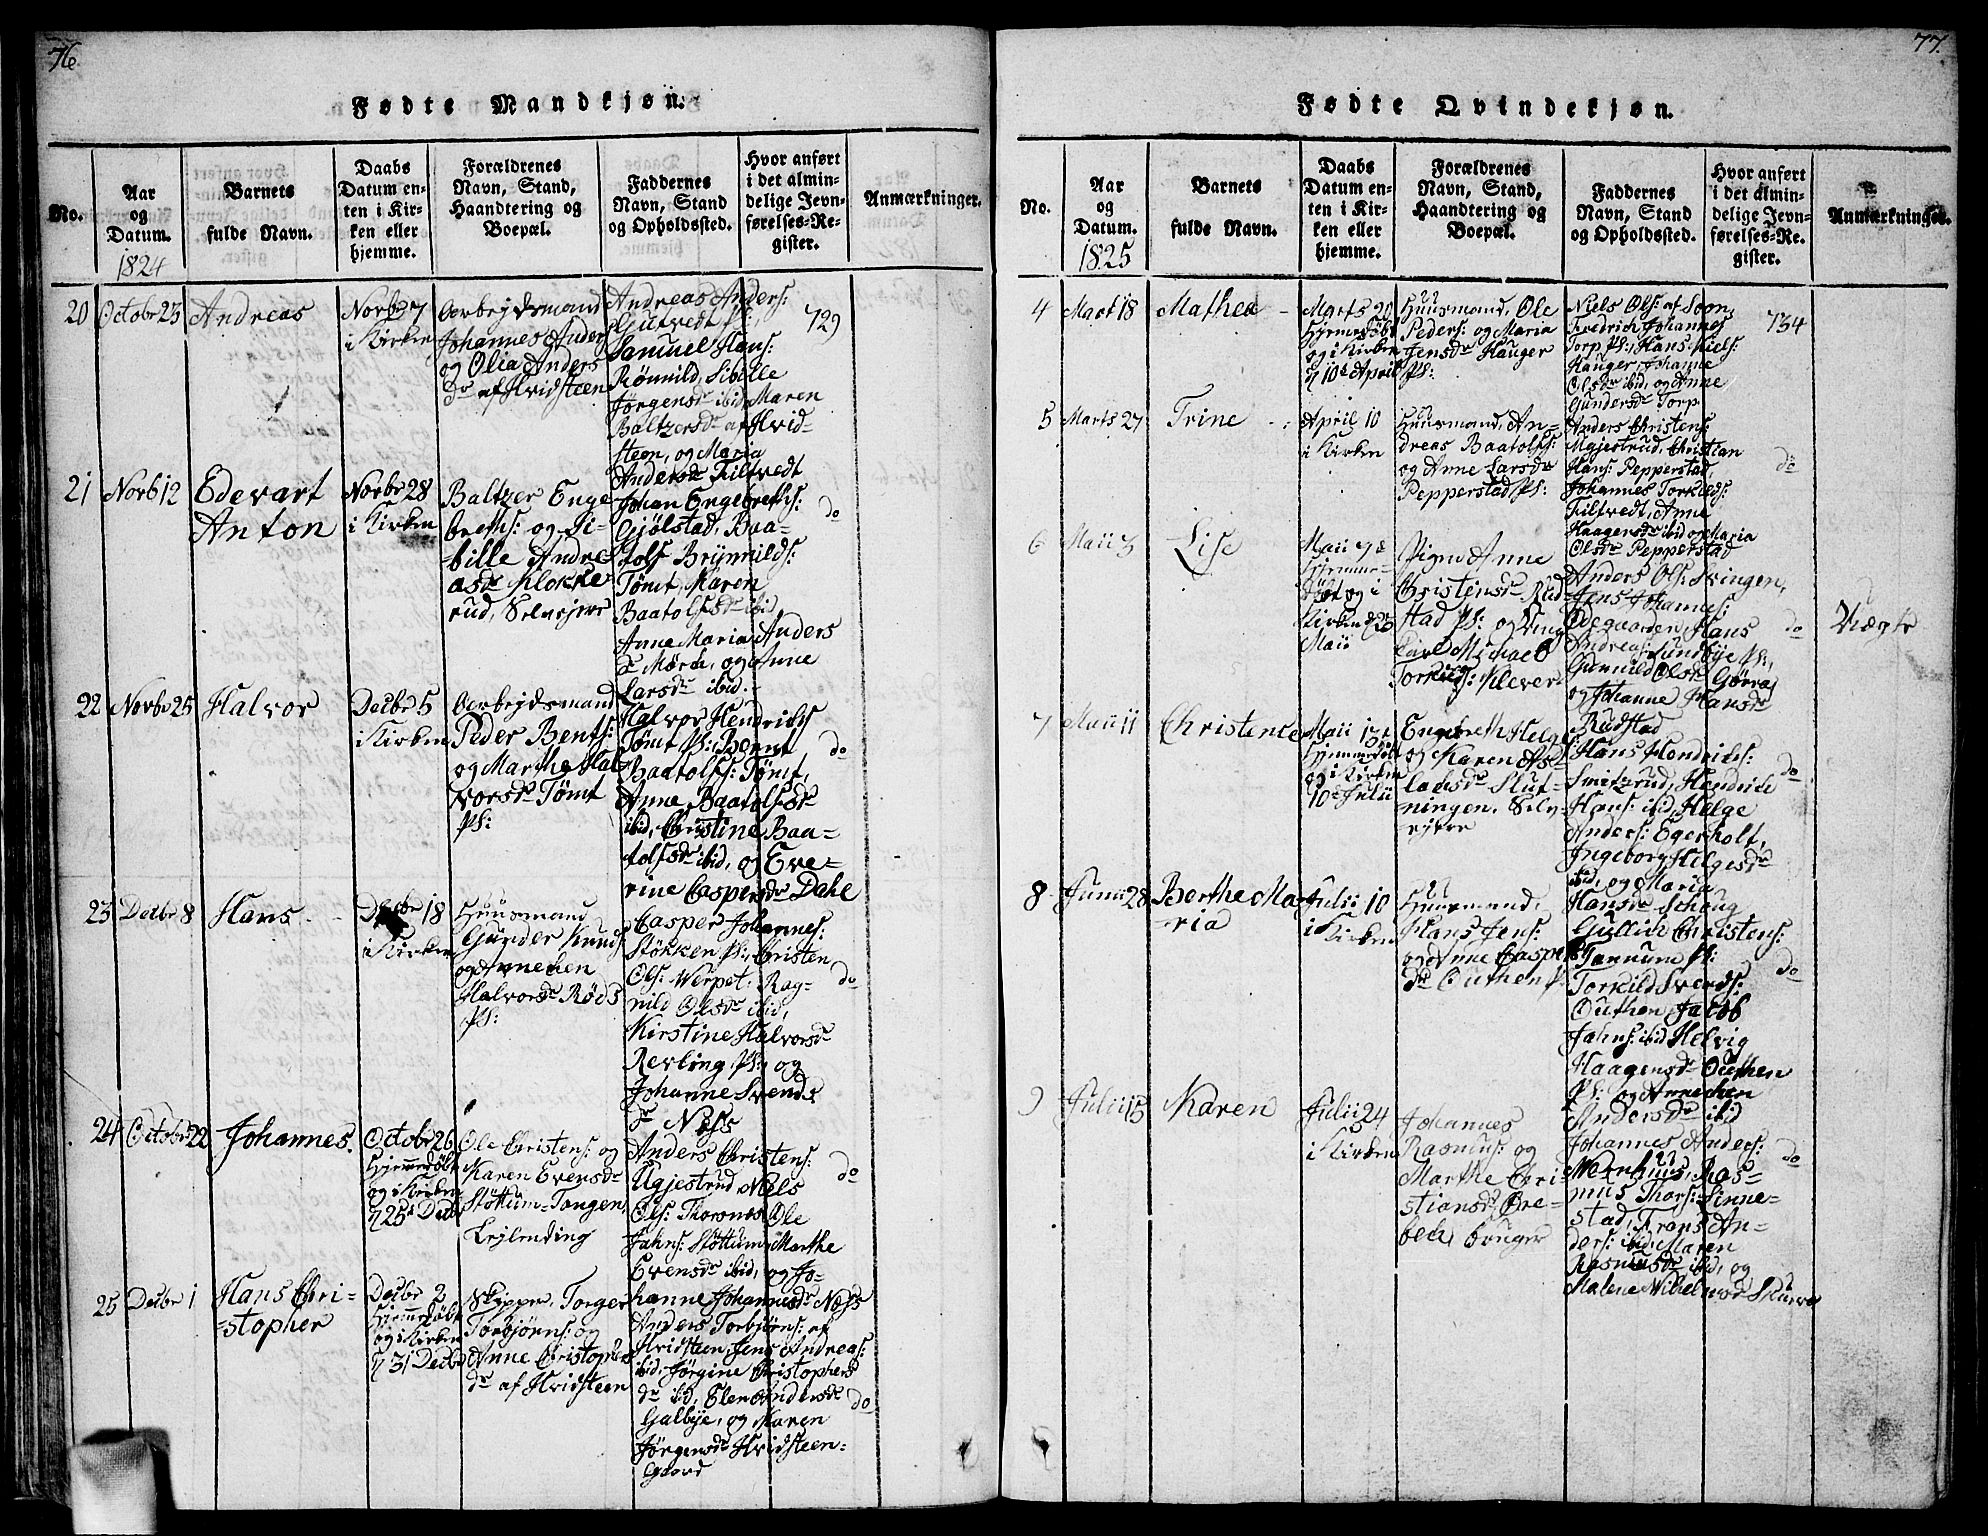 76.
Fødte Mandkjøn.
No.
Aar
og
Datum.
1824
Barnets
fulde Navn.
Daabs
Datum en-
ten i Kir-
ken eller
hjemme.
Forældrenes
Navn, Stand,
Haandtering og
Boepæl.
Faddernes
Navn, Stand
og Opholdssted.
Hvor anført
i det almin-
delige Jevn-
førelses-Re-
gister.
Anmærkninger.
20
Octobr 23
Andreas
Novbr 7
i Kirken
Aarbejdsmand
Johannes Anders
og Olia Anders
dr af Hvidsteen
Andreas Anders:
Gjutvedt Ps:,
Samuel Hans:
Rømnild, Sibille
Jørgensdr ibid, Maren
Baltzersdr af Hvid-
steen, og Maria
Andersdr Filtvedt
729
21
Novb 12
Edevart
Anton
Novbr 28
i Kirken
Baltzer Enge
breths: og Si-
bille Andre
asdr Klokke
rud, Selvejere
Johan Engebreths:
Gjølstad, Baa-
tolf Brynnilds:
Tømt, Maren
Baatolfsdr ibid
Anne Maria Anders
dr Mørch, og Anne
Larsdr ibid.
do
22
Novbr 25
Halvor
Decbr 5
i Kirken
Aarbejdsmand
Peder Bents:
og Marthe Hal
vorsdr Tømt
Ps:
Halvor Hendrichs
Tømt Ps:, Bernt
Baatolfs: Tømt,
Anne Baatolfsdr
ibid, Christine Baa-
tolfsdr ibid, og Eve-
rine Caspersdr Dahl
do
23
Decbr 8
Hans
Decbr 18
i Kirken
Huusmand
Gunder Knuds
og Annechen
Halvorsdr Rød
Ps:
Casper Johannes:
Støkken Ps:, Christen
Ols: Werpet, Rag-
nild Olsdr ibid,
Kirstine Halvorsdr
Revling Ps:, og
Johanne Svends
dr Næss
do
24
Octobr 22
Johannes.
Octobr 26
Hjemmedøbt
og i Kirken
d 25d Decbr
Ole Christens: og
Karen Evensdr
Støttum-Tangen
Lejlending
Anders Christens:
Ugjestrud, Niels
Ols: Thorønes, Ole
Jahns: Støttum, Marthe
Evensdr ibid, og Jo-
hanne Johannesdr Næss
do
25
Decbr 1
Hans Chri-
stopher
Decbr 2
Hjemmedøbt
og i Kirken
d 31 Decbr
Skipper Torger
Torbjørns: og
Anne Christophers
dr af Hvidsteen
Anders Torbjørns: af
Hvidsteen, Jens Andreas:
ibid, Jørgine Christophers
dr ibid, Elen Andersdr
Galbye, og Karen
Jørgensdr Hvidsteen-
Gaard
do
77.
Fødte Qvindekjøn.
No.
Aar
og
Datum.
1825
Barnets
fulde Navn.
Daabs
Datum en-
ten i Kir-
ken eller
hjemme.
Forældrenes
Navn, Stand,
Haandtering og
Boepæl.
Faddernes
Navn, Stand
og Opholdssted.
Hvor anført
i det almin-
delige Jevn-
førelses-Re-
gister.
Anmærkninger.
4
Mart 18
Mathea
Marts 20
Hjemmedøbt
og i Kirken
d 10d April
Huusmand, Ole
Peders: og Maria
Jensdr Hauger
Ps:
Niels Ols: af Soon,
Fredrich Johannes
Torp Ps:, Hans Niels:
Hauger, Johanne
Olsdr ibid, og Anne
Gundersdr Torp
734
5
Marts 27
Trine
April 10
i Kirken
Huusmand, An-
dreas Baatolfs:
og Anne Larsdr
Pepperstad Ps:
Anders Christens
Ugjestrud, Christian
Hans: Pepperstad
Johannes Torkilds:
Filtvedt, Anne
Haagensdr ibid og Maria
Olsdr Pepperstad
do
6
Maii 3
Lise
Maii 7d
Hjemme-
døbt og i
Kirken d 23
Maii
Pigen Anne
Christensdr Rud
stad Ps: og Ung
Carl Michael
Torkilds: Klever
Anders Ols: Svingen,
Jens Johannes:
Ødegaarden, Hans
Andreas: Lundbye Ps:,
Gunnild Olsdr Gørva
og Johanne Hansdr
Rudstad
do
Uægte
7
Maii 11
Christence
Maii 13d
Hjemmedøbt
og i Kirken
10d Julii
Engebreth Helge
og Karen As-
lachsdr Slut-
ningen, Selv-
ejere
Hans Hendrichs:
Smitzrud, Hendrich
Hans: ibid, Helge
Anders: Egerholt,
Ingeborg Helgesdr
ibid, og Maria
Hansdr Schaug
do
8
Junii 28
Berthe Ma-
ria
Julii 10
i Kirken
Huusmand,
Hans Jens:
og Anne Caspers
dr Outhen Ps:
Gullich Christens:
Tannum Ps:
Torkild Sverds:
Outhen, Jacob
Jahns: ibid Helvig
Haagensdr Outhen
Ps: og Annechen
Andersdr ibid
do
9
Julii 15
Karen
Julii 24
i Kirken
Johannes
Rasmus: og
Marthe Chri-
stiansdr Bre-
bech, bruger
Johannes Anders:
Wernhuus, Ras-
mus Thors: Sinne-
stad, Frans An-
ders: ibid, Maren
Rasmusdr ibid, og
Malene Wilhelmsdr Skarvs
do